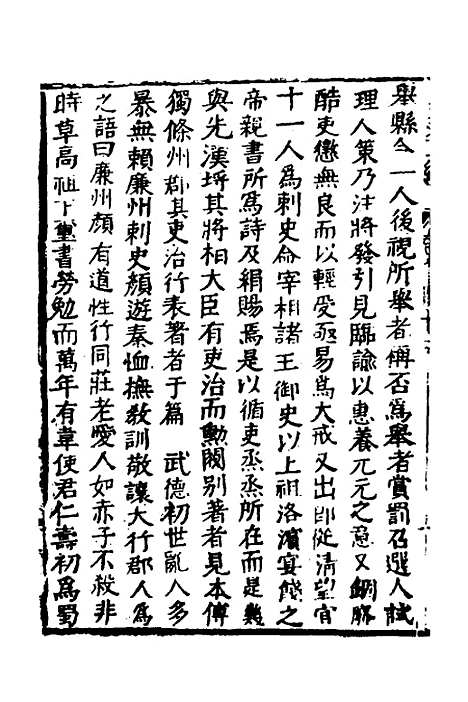 舉縣令一人後視所舉者稱否爲舉者賞罰召選人試
理人策乃注將發引見臨諭以惠養兀元之意又錮賕
酷吏懲無良而以輕受亟易爲大戒又出郎從清望官
十一人爲刺史命宰相諸王御史以上祖洛濱宴餞之
帝親書所爲詩及絹賜焉是以循吏烝烝所在而是幾
與先漢埓其將相大臣有吏治而勲閥别著者見本傳
獨條州郡其吏治行表著者于篇　武德初世亂人多
暴無賴廉州刺史顔遊秦恤撫敎訓敬讓大行郡人爲
之語曰廉州顔有道性行同莊老愛人如赤子不殺非
時草高祖下璽書勞勉而萬年有韋使君仁壽初爲蜀